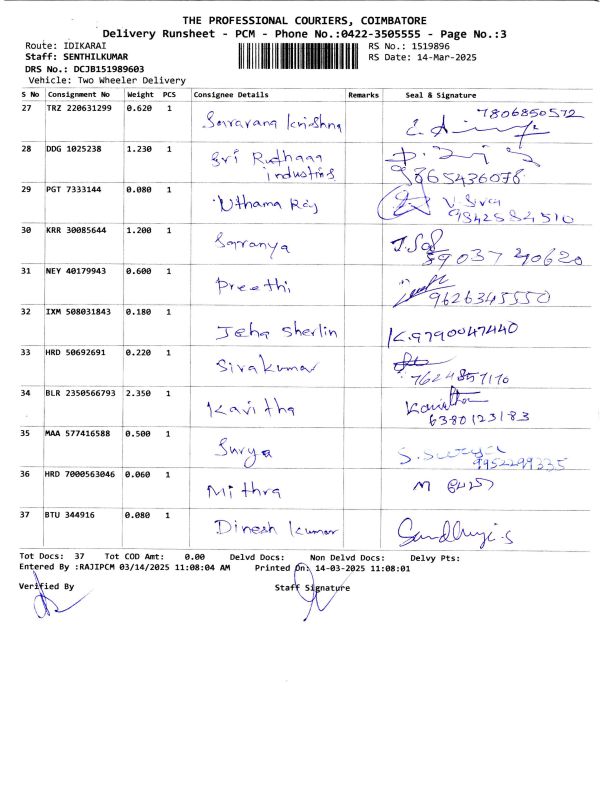 THE PROFESSIONAL COURIERS, COIMBATORE
Delivery Runsheet - PCM - Phone No.:0422-3505555 - Page No.:3
Route: IDIKARAI RS No.: 1519896
Staff: SENTHILKUMAR RS Date: 14-Mar-2025
DRS No.: DCJB151989603
Vehicle: Two Wheeler Delivery
S No Consignment No Weight PCS Consignee Details Remarks Seal & Signature
27 TRZ 220631299 0.620 1 Saravana Krishna 7806850572
28 DDG 1025238 1.230 1 Sri Rudhaaa industries 9865436078
29 PGT 7333144 0.080 1 Uthama Raj V. Siva 9842584510
30 KRR 30085644 1.200 1 Saranya 89037 40620
31 NEY 40179943 0.600 1 Preethi 9626345550
32 IXM 508031843 0.180 1 Jeha Sherlin K. 9790047440
33 HRD 50692691 0.220 1 Sivakumar
34 BLR 2350566793 2.350 1 Kavitha Kavitha 6380123183
35 MAA 577416588 0.500 1 Surya S. Surya 9952299335
36 HRD 7000563046 0.060 1 Mithra M
37 BTU 344916 0.080 1 Dinesh Kumar
Tot Docs: 37 Tot COD Amt: 0.00 Delvd Docs: Non Delvd Docs: Delvy Pts:
Entered By :RAJIPCM 03/14/2025 11:08:04 AM Printed On: 14-03-2025 11:08:01
Verified By Staff Signature